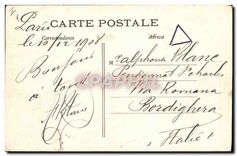 CARTE POSTALE
Correspondance
Adresse
Paris
le 15/12 1908
Bonjour
à tous
M
Alphonse Blanc
Pensionnat St Charles
Via Romana
Bordighera
Italie